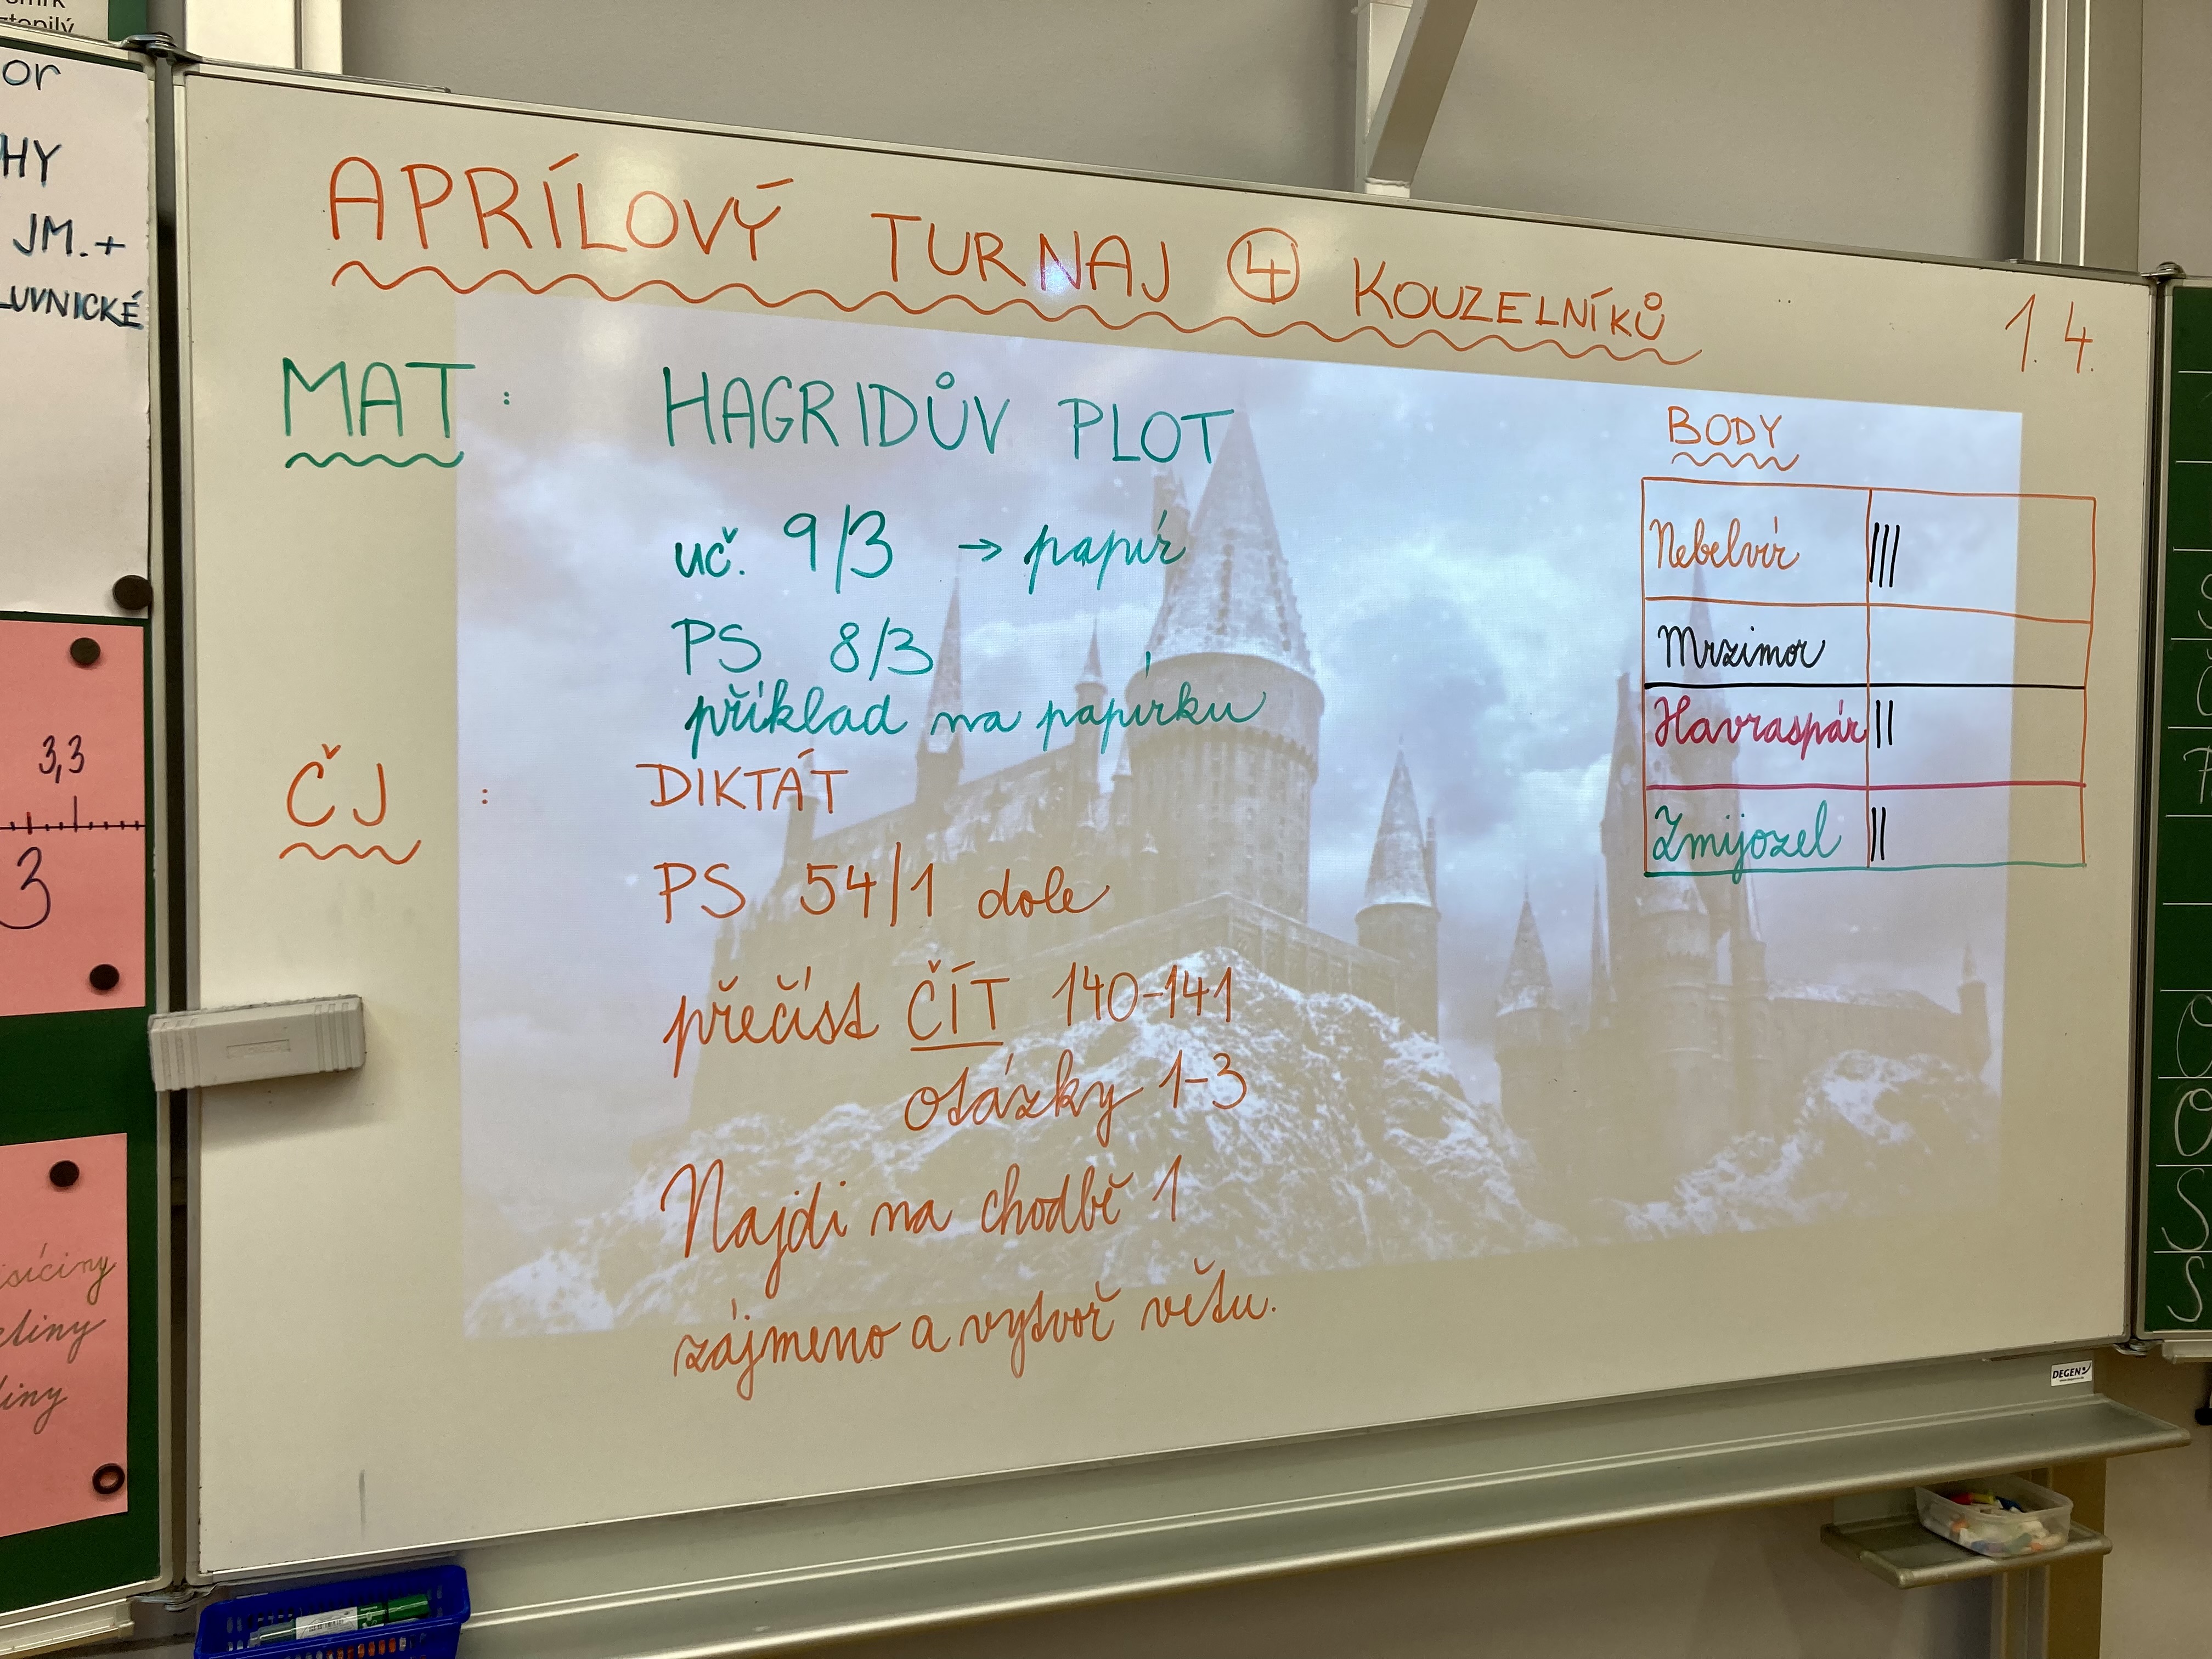 smrk
ztepilý
or
HY
JM.+
LUVNICKÉ
3,3
3
isíciny
etiny
tiny
APRÍLOVÝ TURNAJ 4 KOUZELNÍKŮ
1.4.
MAT: HAGRIDŮV PLOT
uč. 9/3 → papír
PS 8/3
příklad na papírku
ČJ: DIKTÁT
PS 54/1 dole
přečíst ČÍT 140-141
otázky 1-3
Najdi na chodbě 1
zájmeno a vytvoř větu.
BODY
Nebelvír |||
Mrzimor
Havraspár ||
Zmijozel ||
DEGEN